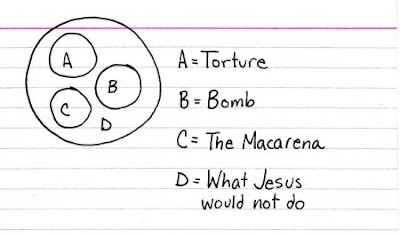 A
B
C
D
A = Torture
B = Bomb
C = The Macarena
D = What Jesus
would not do